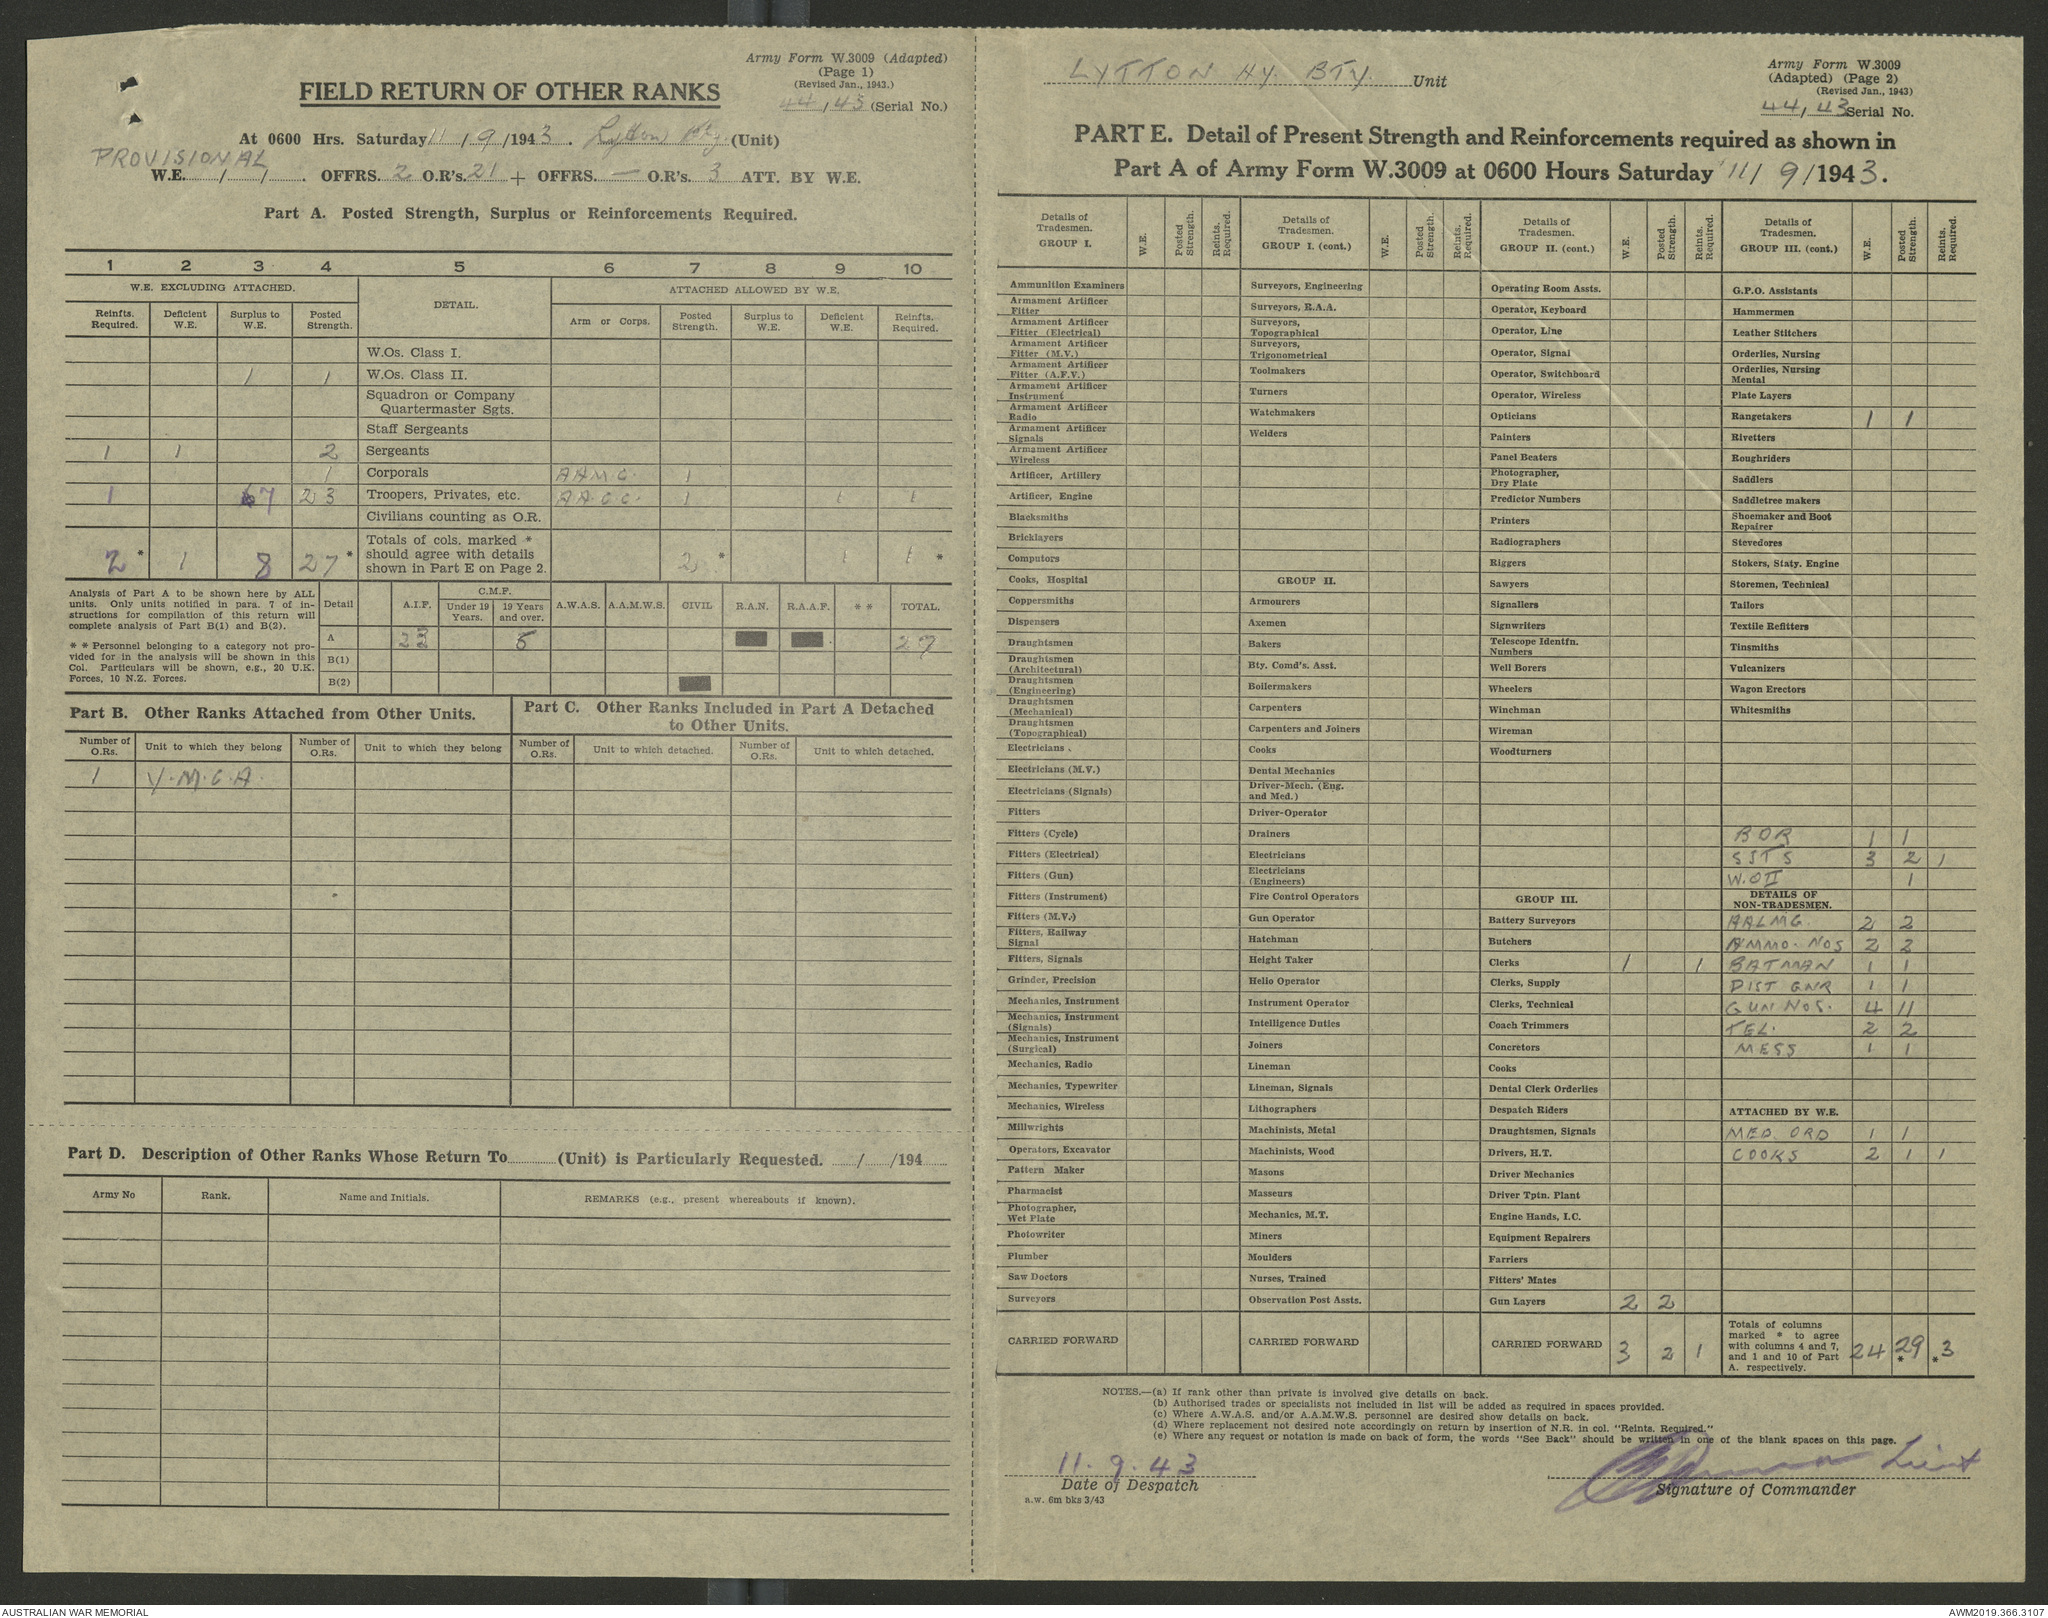 Army Form W.3009 (Adapted)
(Page 1)
(Revised Jan., 1943.)
44/43 (Serial No.)
FIELD RETURN OF OTHER RANKS
At 0600 Hrs. Saturday 11/9/1943. Lytton Bty (Unit)
PROVISIONAL
W.E. / / . OFFRS. 2 O.R's. 21 + OFFRS. — O.R's. 3 ATT. BY W.E.
Part A. Posted Strength, Surplus or Reinforcements Required.
1 2 3 4 5 6 7 8 9 10
W.E. EXCLUDING ATTACHED. DETAIL. ATTACHED ALLOWED BY W.E.
Reinfts. Required. Deficient W.E. Surplus to W.E. Posted Strength. Arm or Corps. Posted Strength. Surplus to W.E. Deficient W.E. Reinfts. Required.
W.Os. Class I.
1 1 W.Os. Class II.
Squadron or Company
Quartermaster Sgts.
Staff Sergeants
1 1 2 Sergeants
1 Corporals A.A.M.C. 1
1 7 23 Troopers, Privates, etc. A.A.C.C. 1 1 1
Civilians counting as O.R.
2* 1 8 27* Totals of cols. marked * should agree with details shown in Part E on Page 2. 2* 1 1*
Analysis of Part A to be shown here by ALL
units. Only units notified in para. 7 of in-
structions for compilation of this return will
complete analysis of Part B(1) and B(2).
* * Personnel belonging to a category not pro-
vided for in the analysis will be shown in this
Col. Particulars will be shown, e.g., 20 U.K.
Forces, 10 N.Z. Forces.
Detail A.I.F. C.M.F. Under 19 Years. 19 Years and over. A.W.A.S. A.A.M.W.S. CIVIL R.A.N. R.A.A.F. * * TOTAL.
A 27
B(1)
B(2)
Part B. Other Ranks Attached from Other Units.
Number of O.Rs. Unit to which they belong Number of O.Rs. Unit to which they belong
1 Y.M.C.A.
Part C. Other Ranks Included in Part A Detached
to Other Units.
Number of O.Rs. Unit to which detached. Number of O.Rs. Unit to which detached.
Part D. Description of Other Ranks Whose Return To (Unit) is Particularly Requested. / /194
Army No Rank. Name and Initials. REMARKS (e.g., present whereabouts if known).
LYTTON HY. BTY. Unit
Army Form W.3009
(Adapted) (Page 2)
(Revised Jan., 1943)
44/43 Serial No.
PART E. Detail of Present Strength and Reinforcements required as shown in
Part A of Army Form W.3009 at 0600 Hours Saturday 11/9/1943.
Details of Tradesmen. GROUP I. W.E. Posted Strength. Reints. Required.
Ammunition Examiners
Armament Artificer Fitter
Armament Artificer Fitter (Electrical)
Armament Artificer Fitter (M.V.)
Armament Artificer Fitter (A.F.V.)
Armament Artificer Instrument
Armament Artificer Radio
Armament Artificer Signals
Armament Artificer Wireless
Artificer, Artillery
Artificer, Engine
Blacksmiths
Bricklayers
Computors
Cooks, Hospital
Coppersmiths
Dispensers
Draughtsmen
Draughtsmen (Architectural)
Draughtsmen (Engineering)
Draughtsmen (Mechanical)
Draughtsmen (Topographical)
Electricians
Electricians (M.V.)
Electricians (Signals)
Fitters
Fitters (Cycle)
Fitters (Electrical)
Fitters (Gun)
Fitters (Instrument)
Fitters (M.V.)
Fitters, Railway Signal
Fitters, Signals
Grinder, Precision
Mechanics, Instrument
Mechanics, Instrument (Signals)
Mechanics, Instrument (Surgical)
Mechanics, Radio
Mechanics, Typewriter
Mechanics, Wireless
Millwrights
Operators, Excavator
Pattern Maker
Pharmacist
Photographer, Wet Plate
Photowriter
Plumber
Saw Doctors
Surveyors
CARRIED FORWARD
Details of Tradesmen. GROUP I. (cont.) W.E. Posted Strength. Reints. Required.
Surveyors, Engineering
Surveyors, R.A.A.
Surveyors, Topographical
Surveyors, Trigonometrical
Toolmakers
Turners
Watchmakers
Welders
GROUP II.
Armourers
Axemen
Bakers
Bty. Comd's. Asst.
Boilermakers
Carpenters
Carpenters and Joiners
Cooks
Dental Mechanics
Driver-Mech. (Eng. and Med.)
Driver-Operator
Drainers
Electricians
Electricians (Engineers)
Fire Control Operators
Gun Operator
Hatchman
Height Taker
Helio Operator
Instrument Operator
Intelligence Duties
Joiners
Lineman
Lineman, Signals
Lithographers
Machinists, Metal
Machinists, Wood
Masons
Masseurs
Mechanics, M.T.
Miners
Moulders
Nurses, Trained
Observation Post Assts.
CARRIED FORWARD
Details of Tradesmen. GROUP II. (cont.) W.E. Posted Strength. Reints. Required.
Operating Room Assts.
Operator, Keyboard
Operator, Line
Operator, Signal
Operator, Switchboard
Operator, Wireless
Opticians
Painters
Panel Beaters
Photographer, Dry Plate
Predictor Numbers
Printers
Radiographers
Riggers
Sawyers
Signallers
Signwriters
Telescope Identfn. Numbers
Well Borers
Wheelers
Winchman
Wireman
Woodturners
GROUP III.
Battery Surveyors
Butchers
Clerks 1 1
Clerks, Supply
Clerks, Technical
Coach Trimmers
Concretors
Cooks
Dental Clerk Orderlies
Despatch Riders
Draughtsmen, Signals
Drivers, H.T.
Driver Mechanics
Driver Tptn. Plant
Engine Hands, I.C.
Equipment Repairers
Farriers
Fitters' Mates
Gun Layers 2 2
CARRIED FORWARD 3 2 1
Details of Tradesmen. GROUP III. (cont.) W.E. Posted Strength. Reints. Required.
G.P.O. Assistants
Hammermen
Leather Stitchers
Orderlies, Nursing
Orderlies, Nursing Mental
Plate Layers
Rangetakers 1 1
Rivetters
Roughriders
Saddlers
Saddletree makers
Shoemaker and Boot Repairer
Stevedores
Stokers, Staty. Engine
Storemen, Technical
Tailors
Textile Refitters
Tinsmiths
Vulcanizers
Wagon Erectors
Whitesmiths
BDR 1 1
SJTS 3 2 1
W.O II 1
DETAILS OF NON-TRADESMEN.
AALMG. 2 2
AMMO. NOS 2 2
BATMAN 1 1
DIST GNR 1 1
GUN NOS. 4 11
TEL. 2 2
MESS 1 1
ATTACHED BY W.E.
MED. ORD 1 1
COOKS 2 1 1
Totals of columns marked * to agree with columns 4 and 7, and 1 and 10 of Part A. respectively. 24 29* *3
NOTES.—(a) If rank other than private is involved give details on back.
(b) Authorised trades or specialists not included in list will be added as required in spaces provided.
(c) Where A.W.A.S. and/or A.A.M.W.S. personnel are desired show details on back.
(d) Where replacement not desired note accordingly on return by insertion of N.R. in col. "Reints. Required."
(e) Where any request or notation is made on back of form, the words "See Back" should be written in one of the blank spaces on this page.
11.9.43
Date of Despatch
a.w. 6m bks 3/43
Lieut
Signature of Commander
AUSTRALIAN WAR MEMORIAL
AWM2019.366.3107